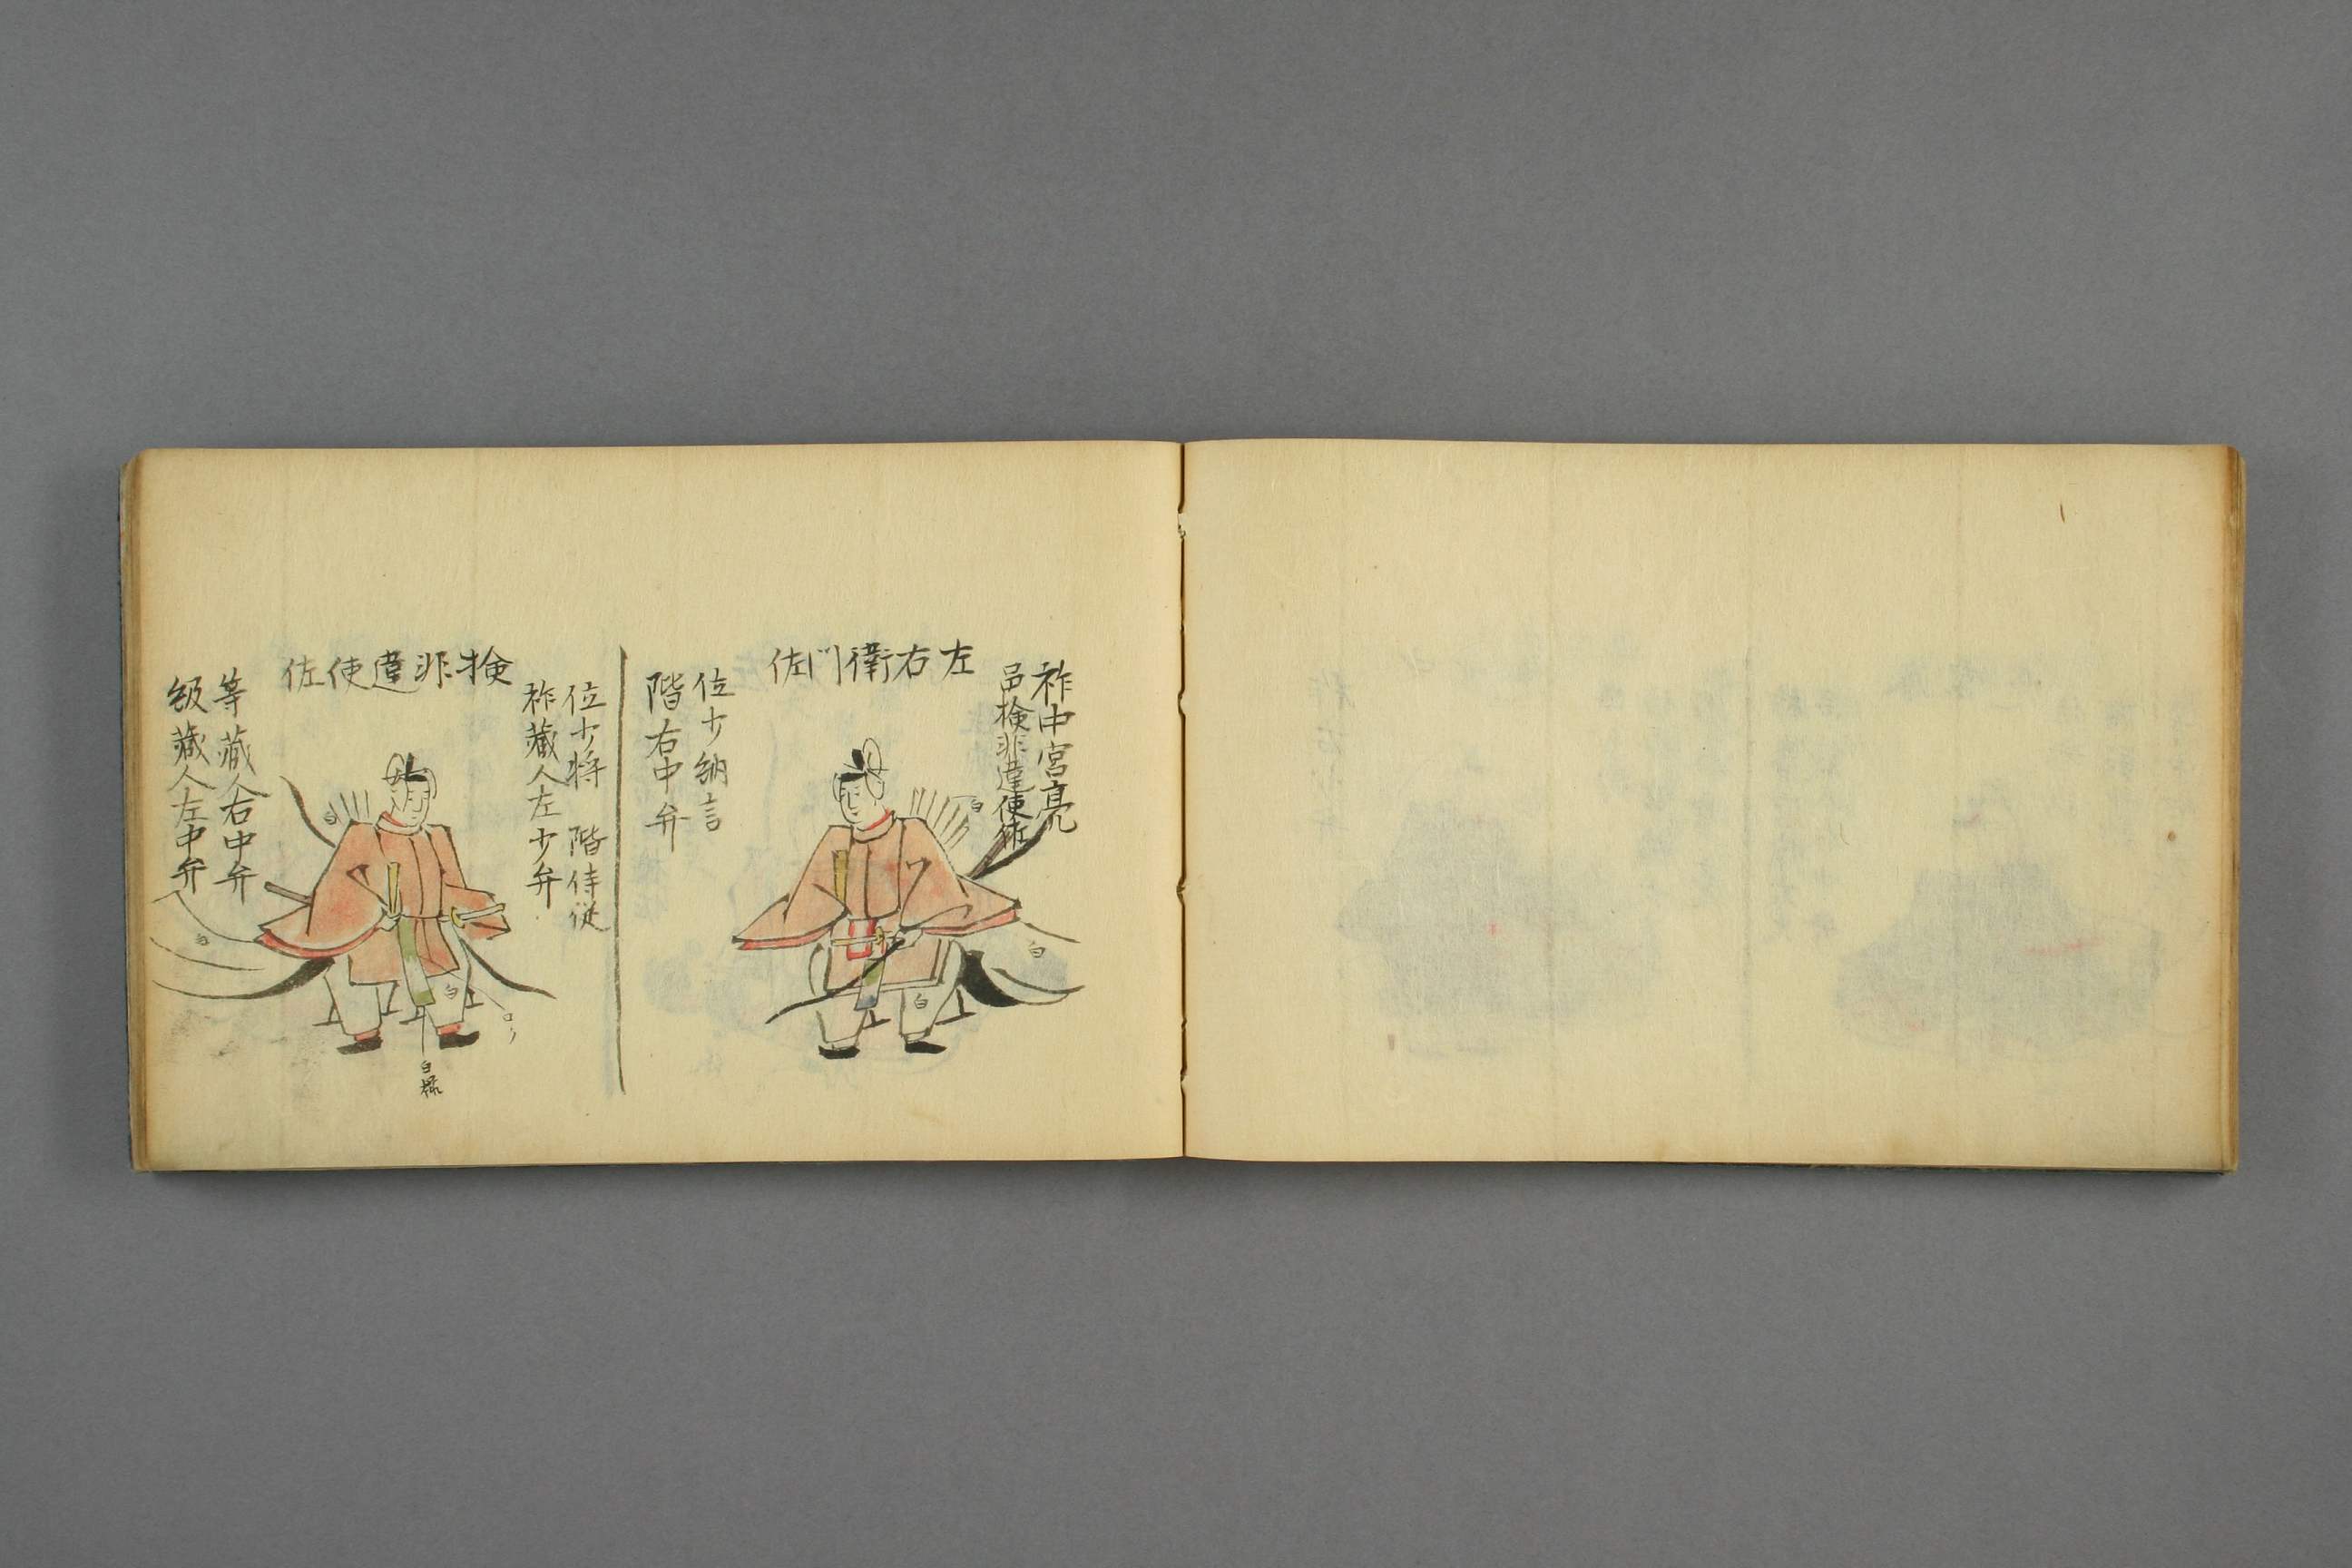 左右衛門佐
祚中宮亮
邑検非違使佐
位少納言
階右中弁
検非違使佐
位少将 階侍従
祚蔵人左少弁
等蔵人右中弁
級蔵人左中弁
白
白
白
白
白
白